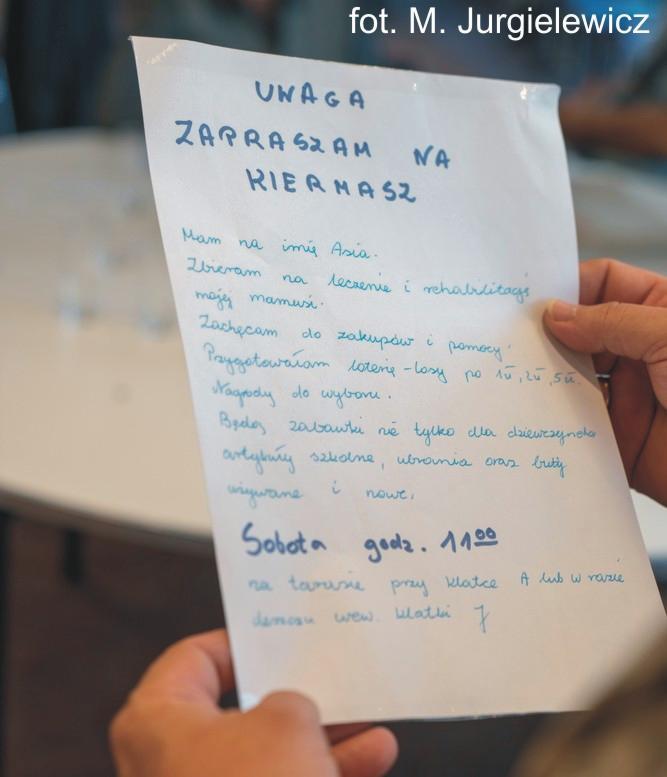 fot. M. Jurgielewicz
UWAGA
ZAPRASZAM NA
KIERMASZ
Mam na imię Asia.
Zbieram na leczenie i rehabilitację
mojej mamusi.
Zachęcam do zakupów i pomocy.
Przygotowałam loterię - losy po 1zł, 2zł, 5zł.
Nagrody do wyboru.
Będą zabawki nie tylko dla dziewczynek
artykuły szkolne, ubrania oraz buty
używane i nowe.
Sobota godz. 11 00
na tarasie przy klatce A lub w razie
deszczu wew. klatki